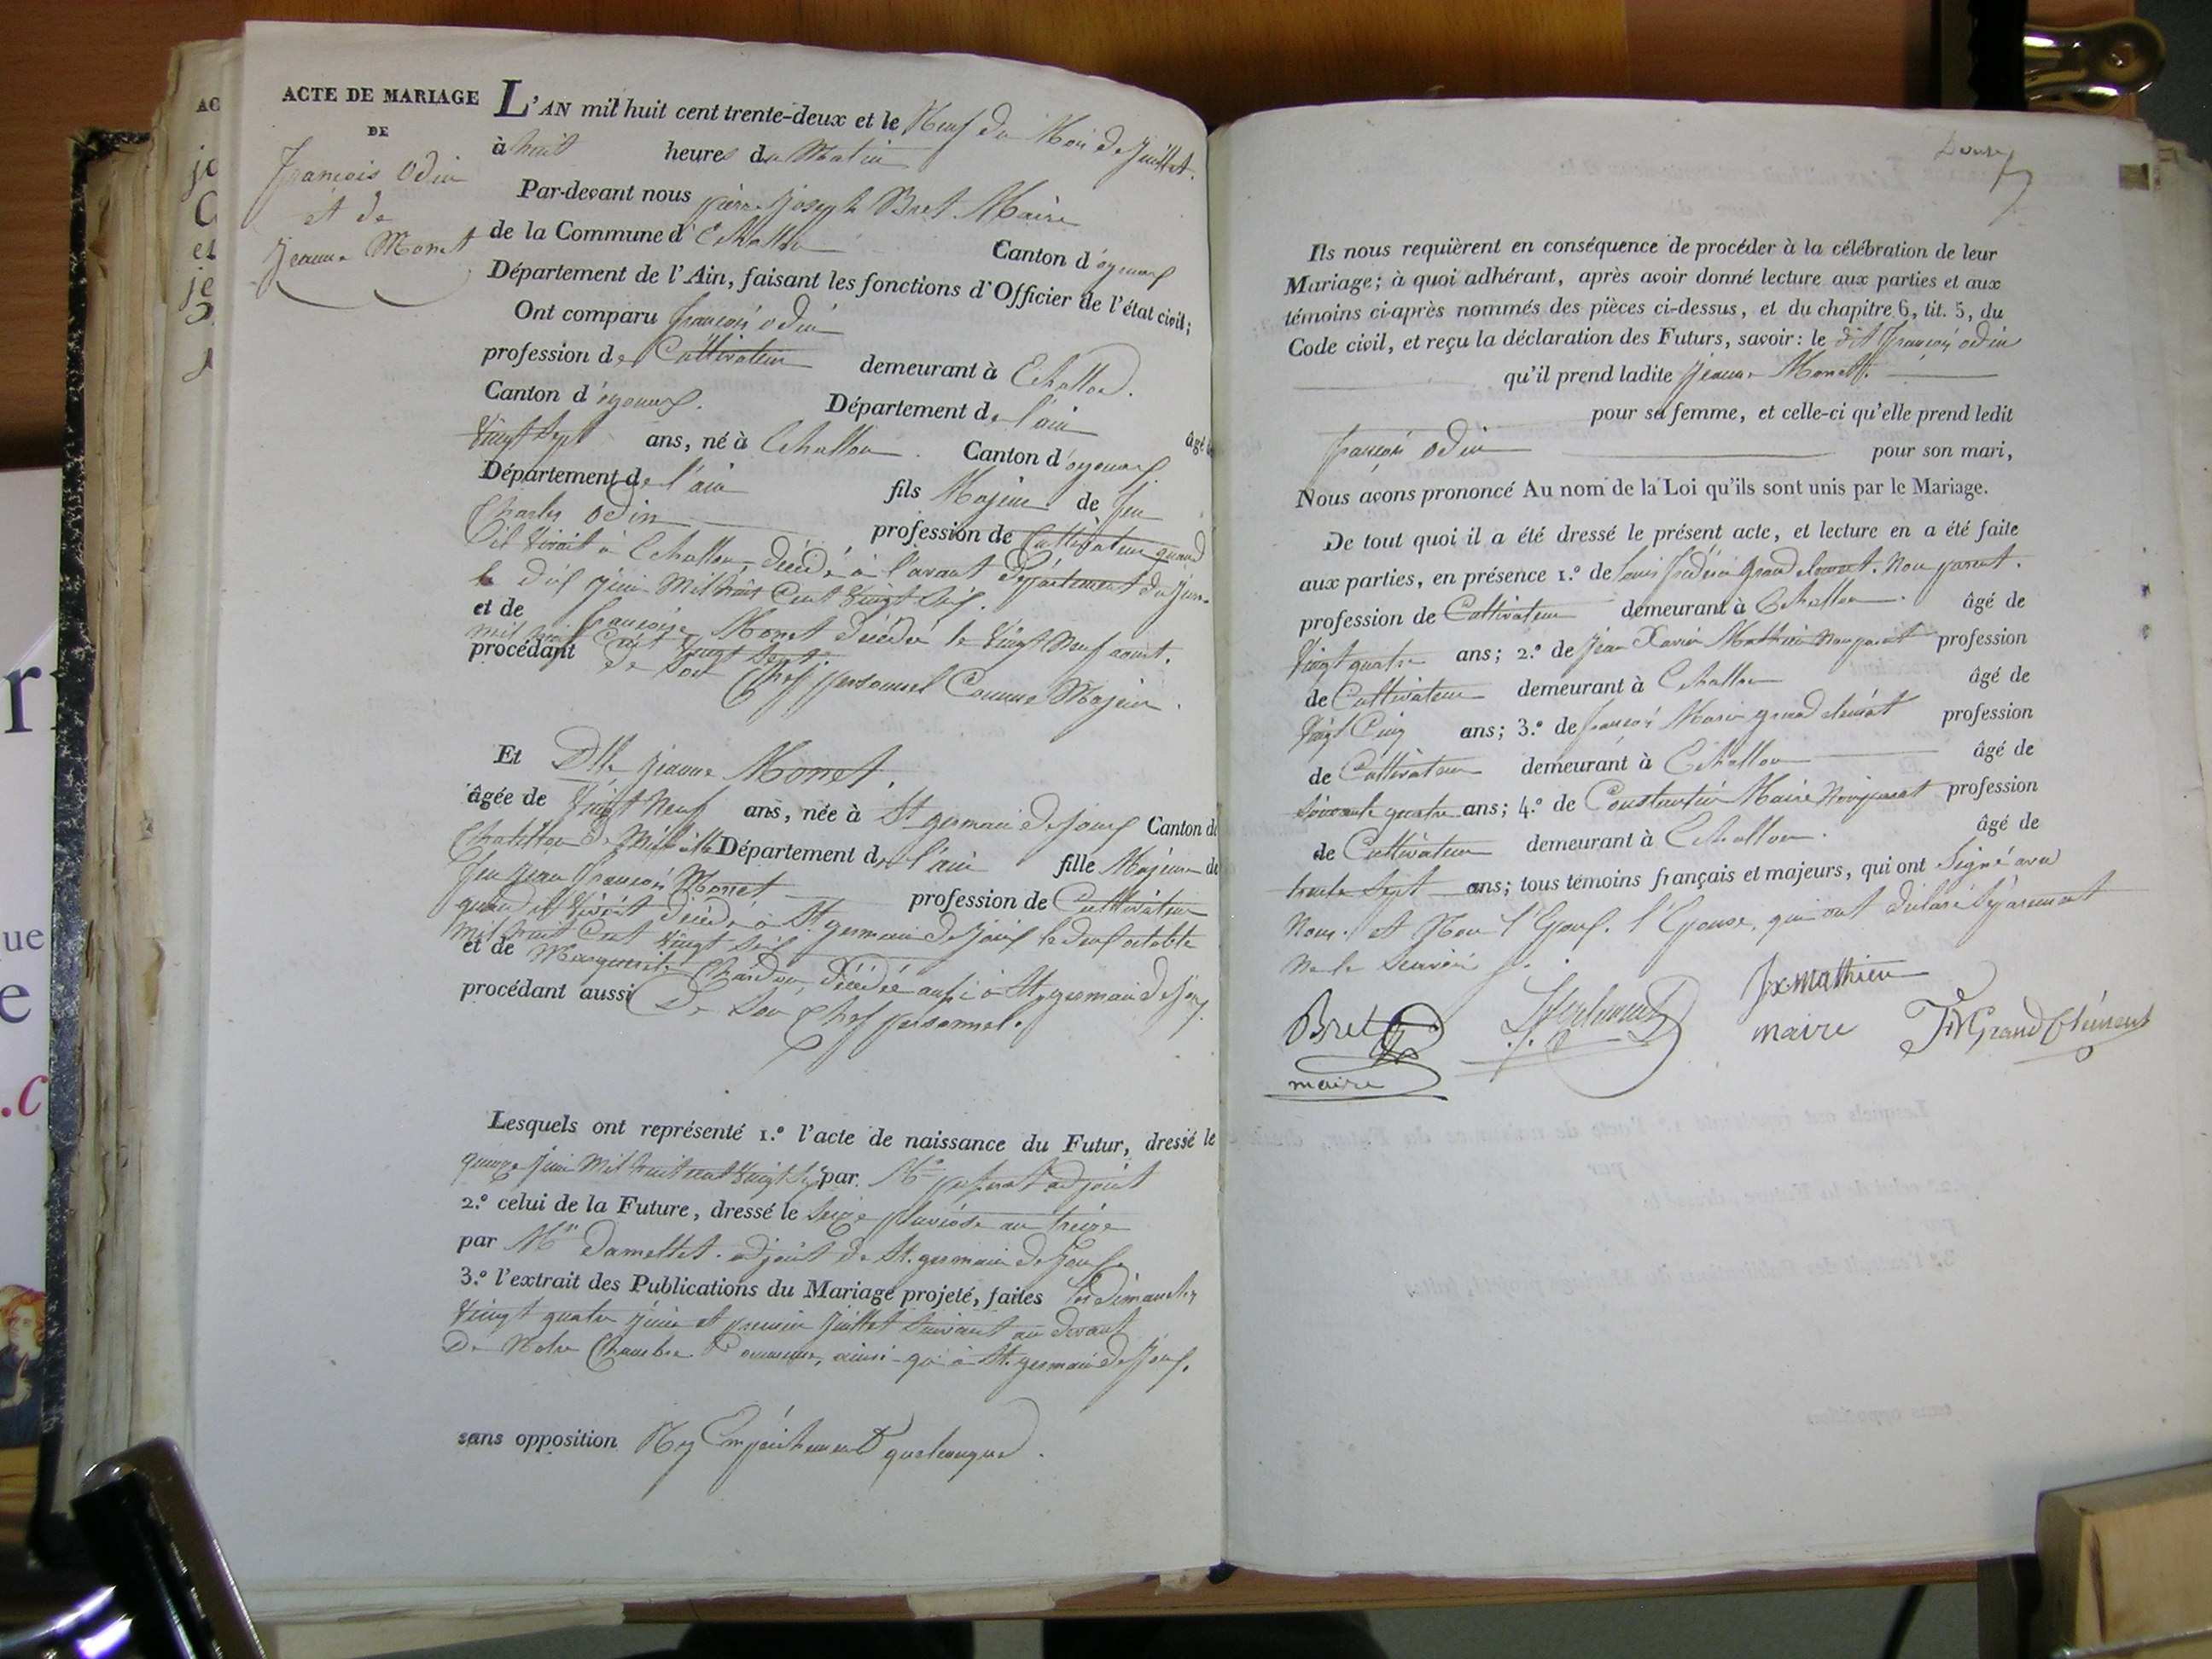 ACTE DE MARIAGE
DE
François Odin
et de
Jeanne Monet
L'AN mil huit cent trente-deux et le Neuf du Mois de Juillet.
à huit heures du Matin
Par-devant nous pierre joseph Bret Maire
de la Commune d' Echallon Canton d'oyonnax
Département de l'Ain, faisant les fonctions d'Officier de l'état civil;
Ont comparu françois odin
profession de Cultivateur demeurant à Echallon.
Canton d'oyonnax. Département de l'ain âgé
Vingt Sept ans, né à Echallon. Canton d'oyonnax
Département de l'ain fils Majeur de feu
Charles Odin profession de Cultivateur quand
il vivait à Echallon, décédé à Département du Jura
le dix juin Mil huit Cent Vingt Six.
et de françoise Monet décédée le Vingt Neuf aout.
mil huit Cent Vingt Sept.
procédant de Son Chef personnel Comme Majeur.
Et Dlle jeanne Monet.
âgée de Vingt Neuf ans, née à St germain de Joux Canton de
Chatillon de Michaille Département de l'ain fille Majeure de
feu jean françois Monet profession de Cultivateur
quand il Vivait décédé à St. germain de Joux le octobre
mil huit Cent Vingt Six
et de Marguerite Chardon, décédée aussi à St. germain de Joux.
procédant aussi De Son Chef personnel.
Lesquels ont représenté 1.º l'acte de naissance du Futur, dressé le
juin Mil huit cent Vingt par Mr. adjoint
2.º celui de la Future, dressé le Seize pluviose an treize
par Mr Damettet. adjoint de St. germain de Joux.
3.º l'extrait des Publications du Mariage projeté, faites les dimanches
Vingt quatre juin et premier juillet Suivant au devant
De Notre Chambre Commune, ainsi qu'à St. germain de Joux.
sans opposition Ny Empêchement quelconque.
Douze
Ils nous requièrent en conséquence de procéder à la célébration de leur
Mariage; à quoi adhérant, après avoir donné lecture aux parties et aux
témoins ci-après nommés des pièces ci-dessus, et du chapitre 6, tit. 5, du
Code civil, et reçu la déclaration des Futurs, savoir: le dit françois odin
qu'il prend ladite jeanne Monet.
pour sa femme, et celle-ci qu'elle prend ledit
françois odin pour son mari,
Nous avons prononcé Au nom de la Loi qu'ils sont unis par le Mariage.
De tout quoi il a été dressé le présent acte, et lecture en a été faite
aux parties, en présence 1.º de Louis Grand clement. Non parent.
profession de Cultivateur demeurant à Echallon. âgé de
Vingt quatre ans; 2.º de jean Xavier Mathieu Non parent profession
de Cultivateur demeurant à Echallon âgé de
Vingt Cinq ans; 3.º de françois Marie grand clément profession
de Cultivateur demeurant à Echallon âgé de
Soixante quatre ans; 4.º de Constantin Maire Non parent profession
de Cultivateur demeurant à Echallon. âgé de
trente Sept ans; tous témoins français et majeurs, qui ont Signé avec
Nous. et Non l'Epoux. l'Epouse, qui ont déclaré Séparément
Ne le Savoir
Bret
maire
Jx Mathieu
maire
FM Grand Clément